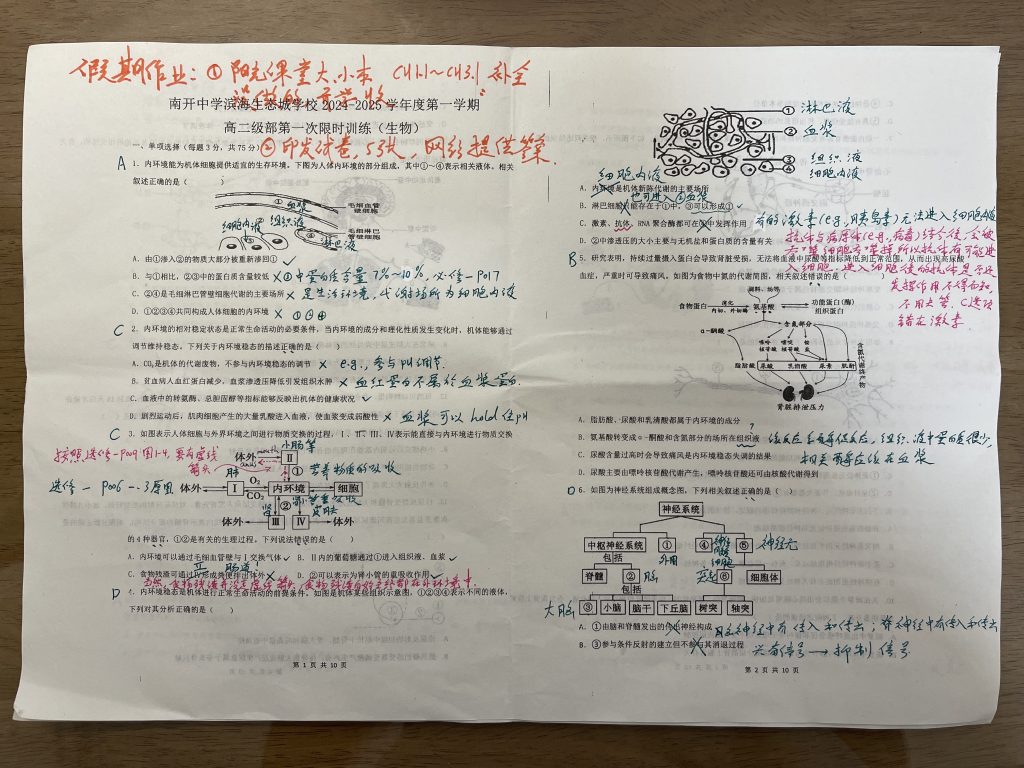 假期作业：① 阳光课堂大小本 CH1.1~CH3.1 补全
南开中学滨海生态城学校 2024-2025 学年度第一学期
高二级部第一次限时训练（生物）
② 印发试卷，5张，网络提供答案.
一、单项选择（每题 3 分，共 75 分）
A
1．内环境能为机体细胞提供适宜的生存环境。下图为人体内环境的部分组成，其中①～④表示相关液体。相关
叙述正确的是（　　）
① 血浆
毛细血管
壁细胞
细胞内液
组织液
毛细淋巴
管壁细胞
淋巴液
A．由①渗入③的物质大部分被重新渗回① ✓
B．与①相比，②③中的蛋白质含量较低 × ①中蛋白质含量 7%~10%，必修一P017
C．②④是毛细淋巴管壁细胞代谢的主要场所 × 是生活环境，代谢场所为细胞内液
D．①②③④共同构成人体细胞的内环境 × ①③④
C
2．内环境的相对稳定状态是正常生命活动的必要条件，当内环境的成分和理化性质发生变化时，机体能够通过
调节维持稳态。下列关于内环境稳态的描述正确的是（　　）
A．CO₂是机体的代谢废物，不参与内环境稳态的调节 × e.g., 参与pH调节.
B．贫血病人血红蛋白减少，血浆渗透压降低引发组织水肿 × 血红蛋白不属于血浆蛋白.
C．血液中的转氨酶、总胆固醇等指标能够反映出机体的健康状况 ✓
D．剧烈运动后，肌肉细胞产生的大量乳酸进入血液，使血浆变成弱酸性 × 血浆可以 hold 住pH
C
3．如图表示人体细胞与外界环境之间进行物质交换的过程，Ⅰ、Ⅱ、Ⅲ、Ⅳ表示能直接与内环境进行物质交换
按照选修一P009图1-4，要有虚线
箭头
选修一P006一.3原图
小肠等
体外 Ⅱ
① 营养物质的吸收
肺
体外 Ⅰ O₂ CO₂ 内环境 细胞
②
肾
体外 Ⅲ Ⅳ 体外
的 4 种器官，①②是有关的生理过程。下列说法错误的是（　　）
A．内环境可以通过毛细血管壁与Ⅰ交换气体 ✓ B．Ⅱ内的葡萄糖通过①进入组织液、血浆 ✓
C．食物残渣可通过Ⅲ形成粪便排出体外 D．②可以表示为肾小管的重吸收作用
D
4．内环境稳态是机体进行正常生命活动的前提条件。如图是机体某些组织示意图，①②③④表示不同的液体，
下列对其分析正确的是（　　）
第 1 页 共 10 页
① 淋巴液
② 血浆
③ 组织液
④ 细胞内液
细胞内液
A．内环境是机体新陈代谢的主要场所
也可进入②血浆
B．淋巴细胞只能存在于①中，③可以形成①
C．激素、抗体、RNA 聚合酶都可在②中发挥作用 有的激素(e.g., 胰岛素)无法进入细胞内液
D．②中渗透压的大小主要与无机盐和蛋白质的含量有关
B
5．研究表明，持续过量摄入蛋白会导致肾脏受损，无法将血液中尿酸等指标降低到正常范围，从而出现高尿酸
血症，严重时可导致痛风。如图为食物中氮的代谢简图，相关叙述错误的是（　　）
发挥作用不得而知，
不用去管，C选项
错在激素.
食物蛋白 消化 氨基酸 功能蛋白（酶）
组织蛋白
α-酮酸 含氮部分
嘌呤 嘧啶 铵
核苷酸 核苷酸 氨
脂肪酸 尿酸 乳清酸 尿素 肌酐
含氮代谢终产物
肾脏排泄压力
A．脂肪酸、尿酸和乳清酸都属于内环境的成分
B．氨基酸转变成 α-酮酸和含氮部分的场所在组织液
C．尿酸含量过高时会导致痛风是内环境稳态失调的结果
D．尿酸主要由嘌呤核苷酸代谢产生，嘌呤核苷酸还可由核酸代谢得到
D
6．如图为神经系统组成概念图，下列相关叙述正确的是（　　）
神经系统
中枢神经系统 ① ④ ⑤ 神经元
包括 外周 神经胶质细胞 包括
脊髓 ② 脑 ⑥ 细胞体
包括
大脑 ③ 小脑 脑干 下丘脑 树突 轴突
A．①由脑和脊髓发出的传出神经构成 × 脑神经中有传入和传出；脊神经中有传入和传出
B．③参与条件反射的建立但不参与其消退过程 兴奋信号→抑制信号
第 2 页 共 10 页